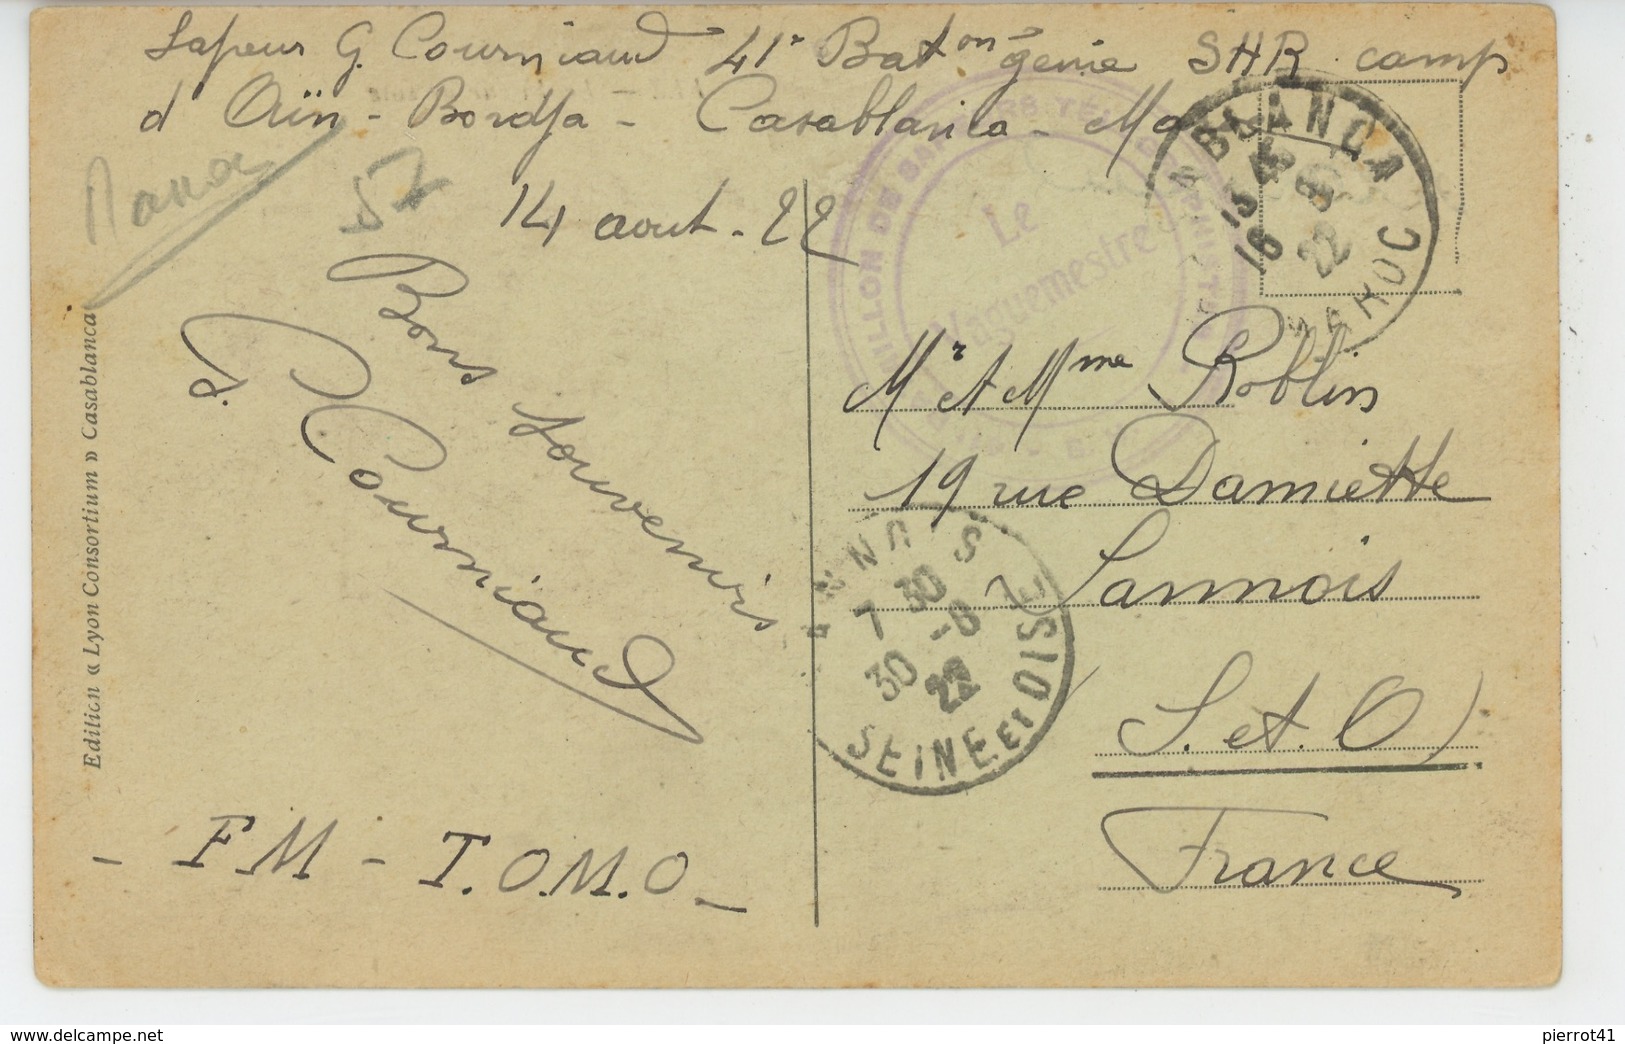 Sapeur G. Courniaud 41e Baton génie SHR camp
d'Aïn-Bordja - Casablanca - Maroc
Maroc
57
14 aout - 22
Bons Souvenirs
G. Courniaud
- F.M - T.O.M.O -
Edition « Lyon Consortium » Casablanca
Le
Vaguemestre
BLANCA
15 45
16 8
22
MAROC
Mr et Mme Roblin
19 rue Damiette
Sannois
(S. et. O)
France
SANNOIS
7 30
30 -8
22
SEINE ET OISE
delcampe.net
pierrot41